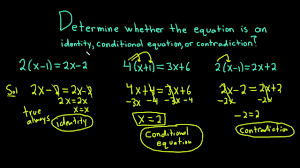 Determine whether the equation is an
identity, conditional equation, or contradiction?
2(x-1)=2x-2
4(x+1)=3x+6
2(x-1)=2x+2
Sol
2x-2=2x-2
2x=2x
x=x
true always
identity
4x+4=3x+6
-3x -4 -3x -4
x=2
Conditional
equation
2x-2=2x+2
-2x -2x
-2=2
Contradiction